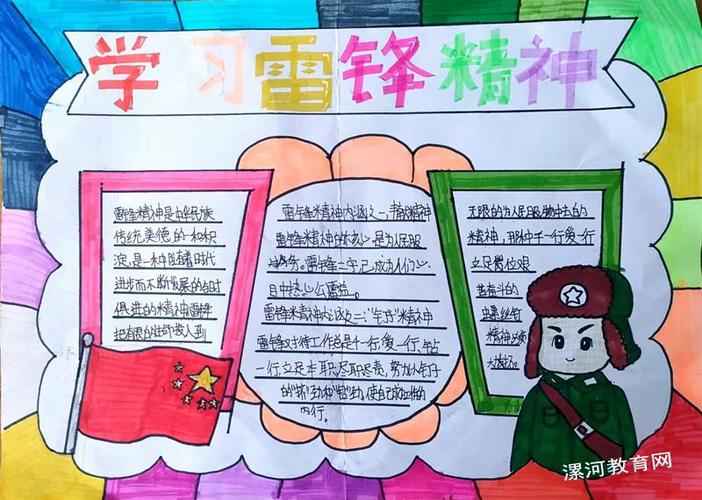 学习雷锋精神
雷锋精神是中华民族
传统美德的一种积
淀,是一种随着时代
进步而不断发展的与时
俱进的精神雷锋
把有限的生命投入到
雷锋精神内涵之一:
雷锋精神的核心是为人民服
务。雷锋二字已成为人们心
目中热心公益
雷锋精神内涵之二:"钉子"精神
雷锋对待工作总是干一行爱一行、钻
一行立足本职、尽职尽责,努力以钉子
的
内行。
无限的为人民服务中去的
精神,那种干一行爱一行
立足岗位艰
苦奋斗的
螺丝钉
精神
漯河教育网